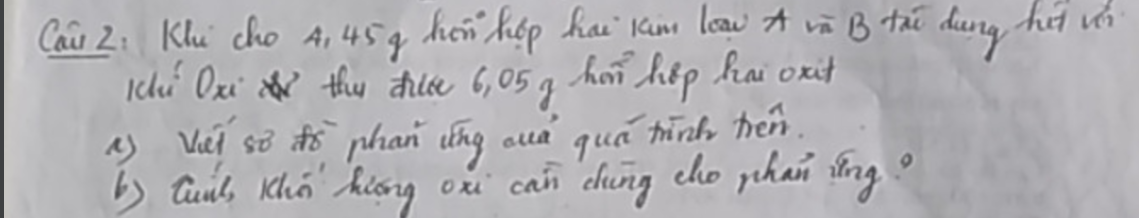 Câu 2: Khi cho 4,45g hỗn hợp hai kim loại A và B tác dụng hết với
khí Oxi thu được 6,05g hỗn hợp hai oxit
a) Viết sơ đồ phản ứng của quá trình trên.
b) Tính khối lượng oxi cần dùng cho phản ứng?